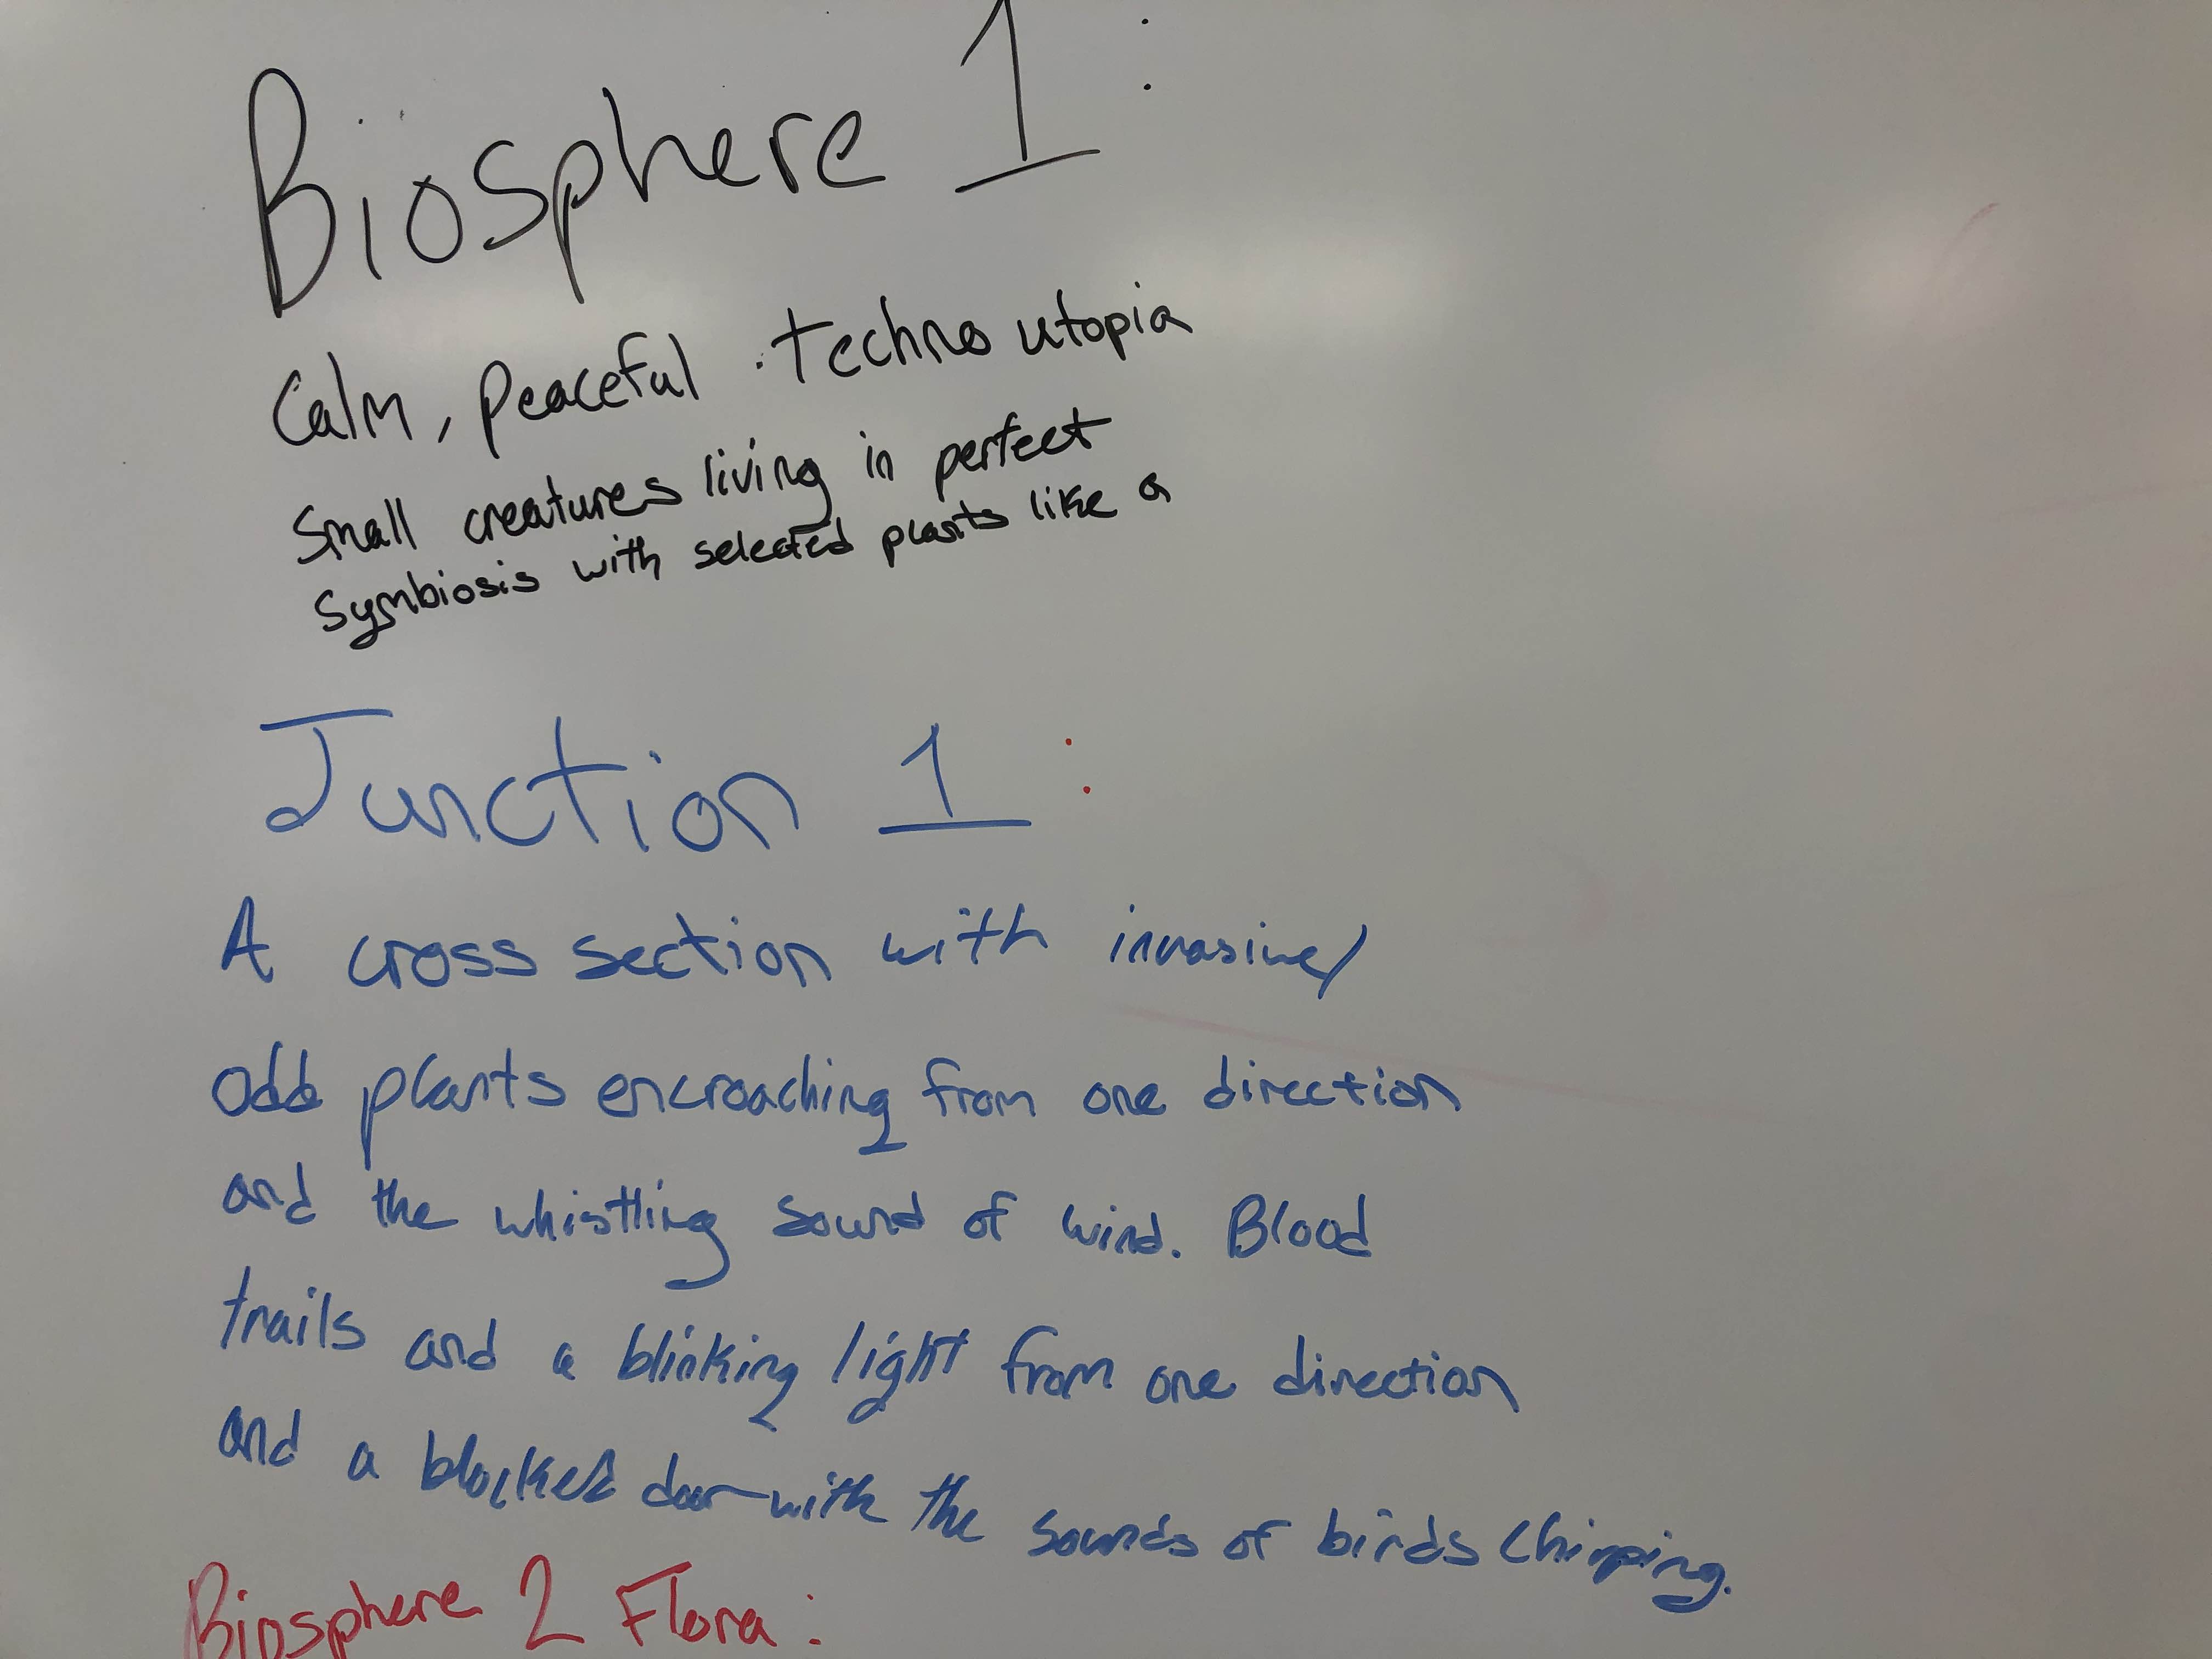 Biosphere 1:
Calm, peaceful techno utopia
Small creatures living in perfect
Symbiosis with selected plants like a
Junction 1:
A cross section with invasive/
odd plants encroaching from one direction
and the whistling sound of wind. Blood
trails and a blinking light from one direction
and a blocked door with the sounds of birds chirping.
Biosphere 2 Flora: